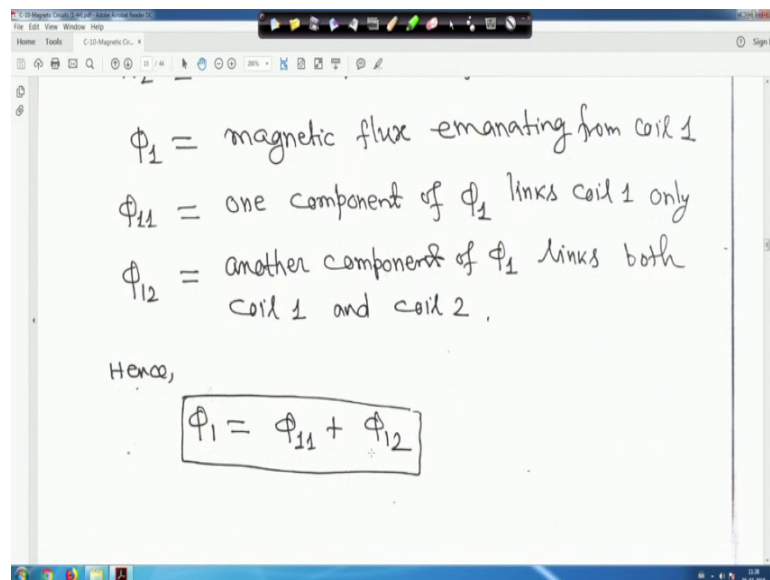 C-10-Magnetic Circuits (1-44).pdf - Adobe Acrobat Reader DC
File Edit View Window Help
Home Tools C-10-Magnetic Cir... × Sign
15 / 46 200%
ϕ₁ = magnetic flux emanating from coil 1
ϕ₁₁ = one component of ϕ₁ links coil 1 only
ϕ₁₂ = another component of ϕ₁ links both
coil 1 and coil 2.
Hence,
ϕ₁ = ϕ₁₁ + ϕ₁₂